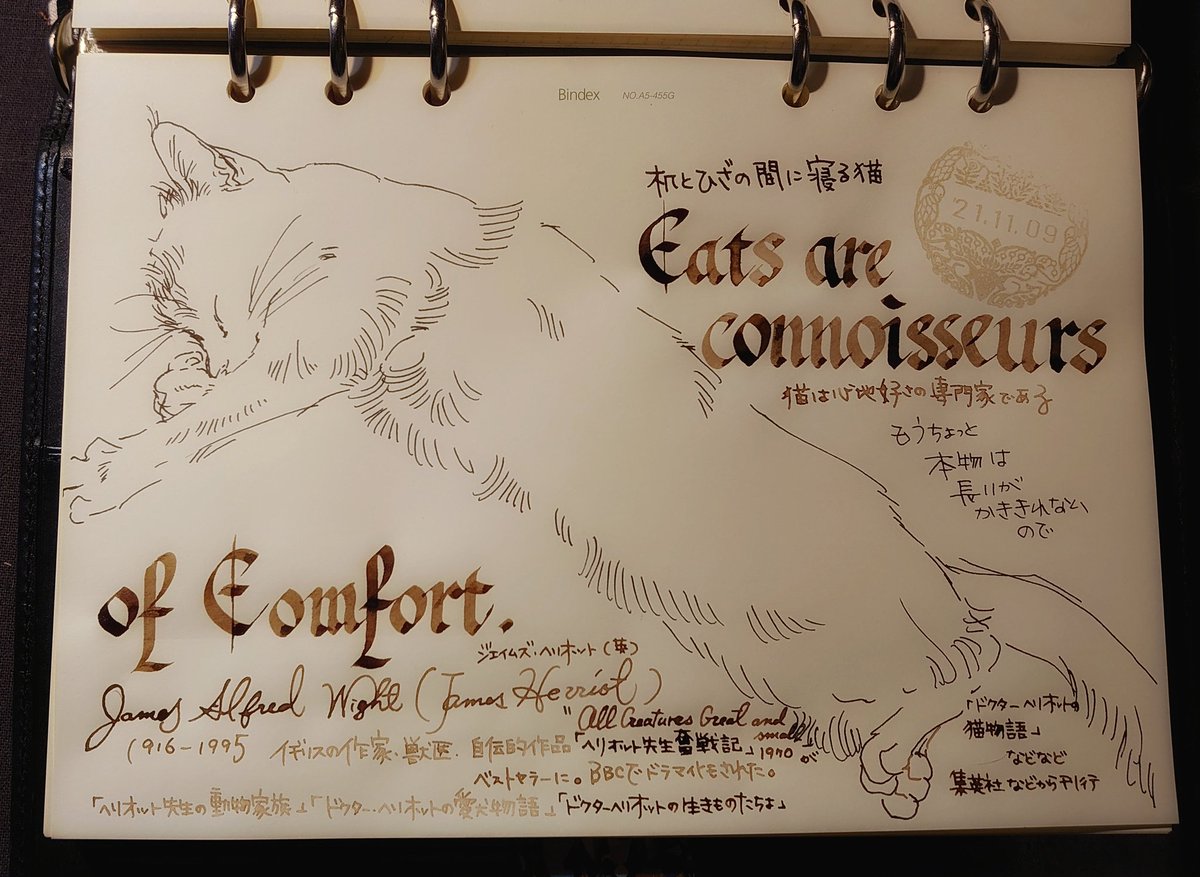 Bindex NO.A5-455G
机とひざの間に寝る猫
'21.11.09
Cats are
connoisseurs
猫は心地好さの専門家である
もうちょっと
本物は
長いが
かききれない
ので
of Comfort.
ジェイムズ・ヘリオット(英)
James Alfred Wight (James Herriot)
"All Creatures Great and small"
1916-1995 イギリスの作家・獣医。自伝的作品「ヘリオット先生奮戦記」1970が
ベストセラーに。BBCでドラマ化もされた。
「ヘリオット先生の動物家族」「ドクター・ヘリオットの愛犬物語」「ドクターヘリオットの生きものたちよ」
「ドクターヘリオットの
猫物語」
などなど
集英社などから刊行